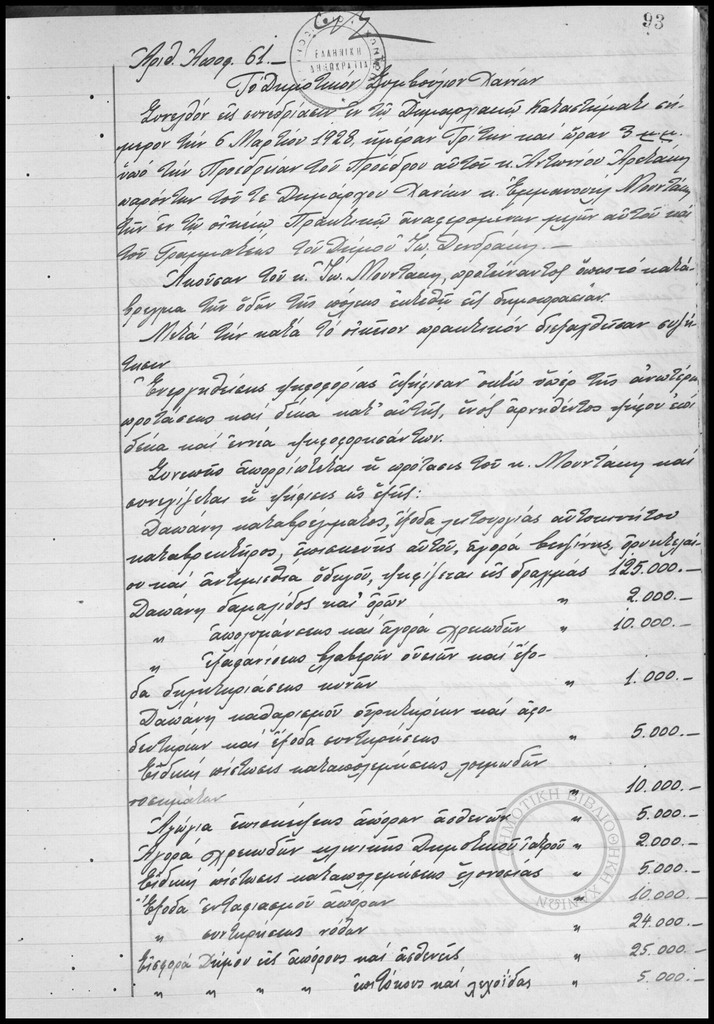 93
ΕΛΛΗΝΙΚΗ
ΔΗΜΟΚΡΑΤΙΑ
Ἀριθ. Ἀποφ. 61.—
Τὸ Δημοτικὸν Συμβούλιον Χανίων
Συνελθὸν εἰς συνεδρίασιν ἐν τῷ Δημαρχιακῷ Καταστήματι σή-
μερον τὴν 6 Μαρτίου 1928, ἡμέραν Τρίτην καὶ ὥραν 3 μ.μ.
ὑπὸ τὴν Προεδρείαν τοῦ Προέδρου αὐτοῦ κ. Ἀντωνίου Ἀρετάκη
παρόντων τοῦ τε Δημάρχου Χανίων κ. Ἐμμανουὴλ Μουντάκη
τῶν ἐν τῷ οἰκείῳ Πρακτικῷ ἀναφερομένων μελῶν αὐτοῦ καὶ
τοῦ Γραμματέως τοῦ Δήμου Ἰω. Δενδράκη.—
Ἀκοῦσαν τοῦ κ. Ἰω. Μουντάκη, προτείναντος ὅπως τὸ κατά-
βρεγμα τῶν ὁδῶν τῆς πόλεως ἐκτεθῇ εἰς δημοπρασίαν.
Μετὰ τὴν κατὰ τὸ οἰκεῖον πρακτικὸν διεξαχθεῖσαν συζή-
τησιν
Ἐνεργηθείσης ψηφοφορίας ἐψήφισαν ὀκτὼ ὑπὲρ τῆς ἀνωτέρω
προτάσεως καὶ δέκα κατ' αὐτῆς, ἑνὸς ἀρνηθέντος ψῆφον ἐπὶ
δέκα καὶ ἐννέα ψηφοφορησάντων.
Συνεπῶς ἀπορρίπτεται ἡ πρότασις τοῦ κ. Μουντάκη καὶ
συνεχίζεται ἡ ψήφισις ὡς ἑξῆς:
Δαπάνη καταβρέγματος, ἔξοδα λειτουργίας αὐτοκινήτου
καταβρεκτῆρος, ἐπισκευῆς αὐτοῦ, ἀγορὰ βενζίνης, ὀρυκτελαί-
ου καὶ ἀντιμισθία ὁδηγοῦ, ψηφίζεται εἰς δραχμὰς 125.000.—
Δαπάνη δαμαλίδος καὶ ὀρῶν " 2.000.—
" ἀπολυμάνσεως καὶ ἀγορὰ χρειωδῶν " 10.000.—
" ἐξαφανίσεως βλαβερῶν οὐσιῶν καὶ ἔξο-
δα δηλητηριάσεως κυνῶν " 1.000.—
Δαπάνη καθαρισμοῦ οὐρητηρίων καὶ ἀφο-
δευτηρίων καὶ ἔξοδα συντηρήσεως " 5.000.—
Εἰδικὴ πίστωσις καταπολεμήσεως λοιμωδῶν
νοσημάτων " 10.000.—
Ἀγώγια ἐπισκέψεως ἀπόρων ἀσθενῶν " 5.000.—
Ἀγορὰ χρειωδῶν κλινικῆς Δημοτικοῦ ἰατροῦ " 2.000.—
Εἰδικὴ πίστωσις καταπολεμήσεως ἑλονοσίας " 5.000.—
Ἔξοδα ἐνταφιασμοῦ ἀπόρων " 10.000.—
" συντηρήσεως νόθων " 24.000.—
Εἰσφορὰ Δήμου εἰς ἀπόρους καὶ ἀσθενεῖς " 25.000.—
" " " " ἐπιτόκους καὶ λεχοΐδας " 5.000.—
ΔΗΜΟΤΙΚΗ ΒΙΒΛΙΟΘΗΚΗ ΧΑΝΙΩΝ